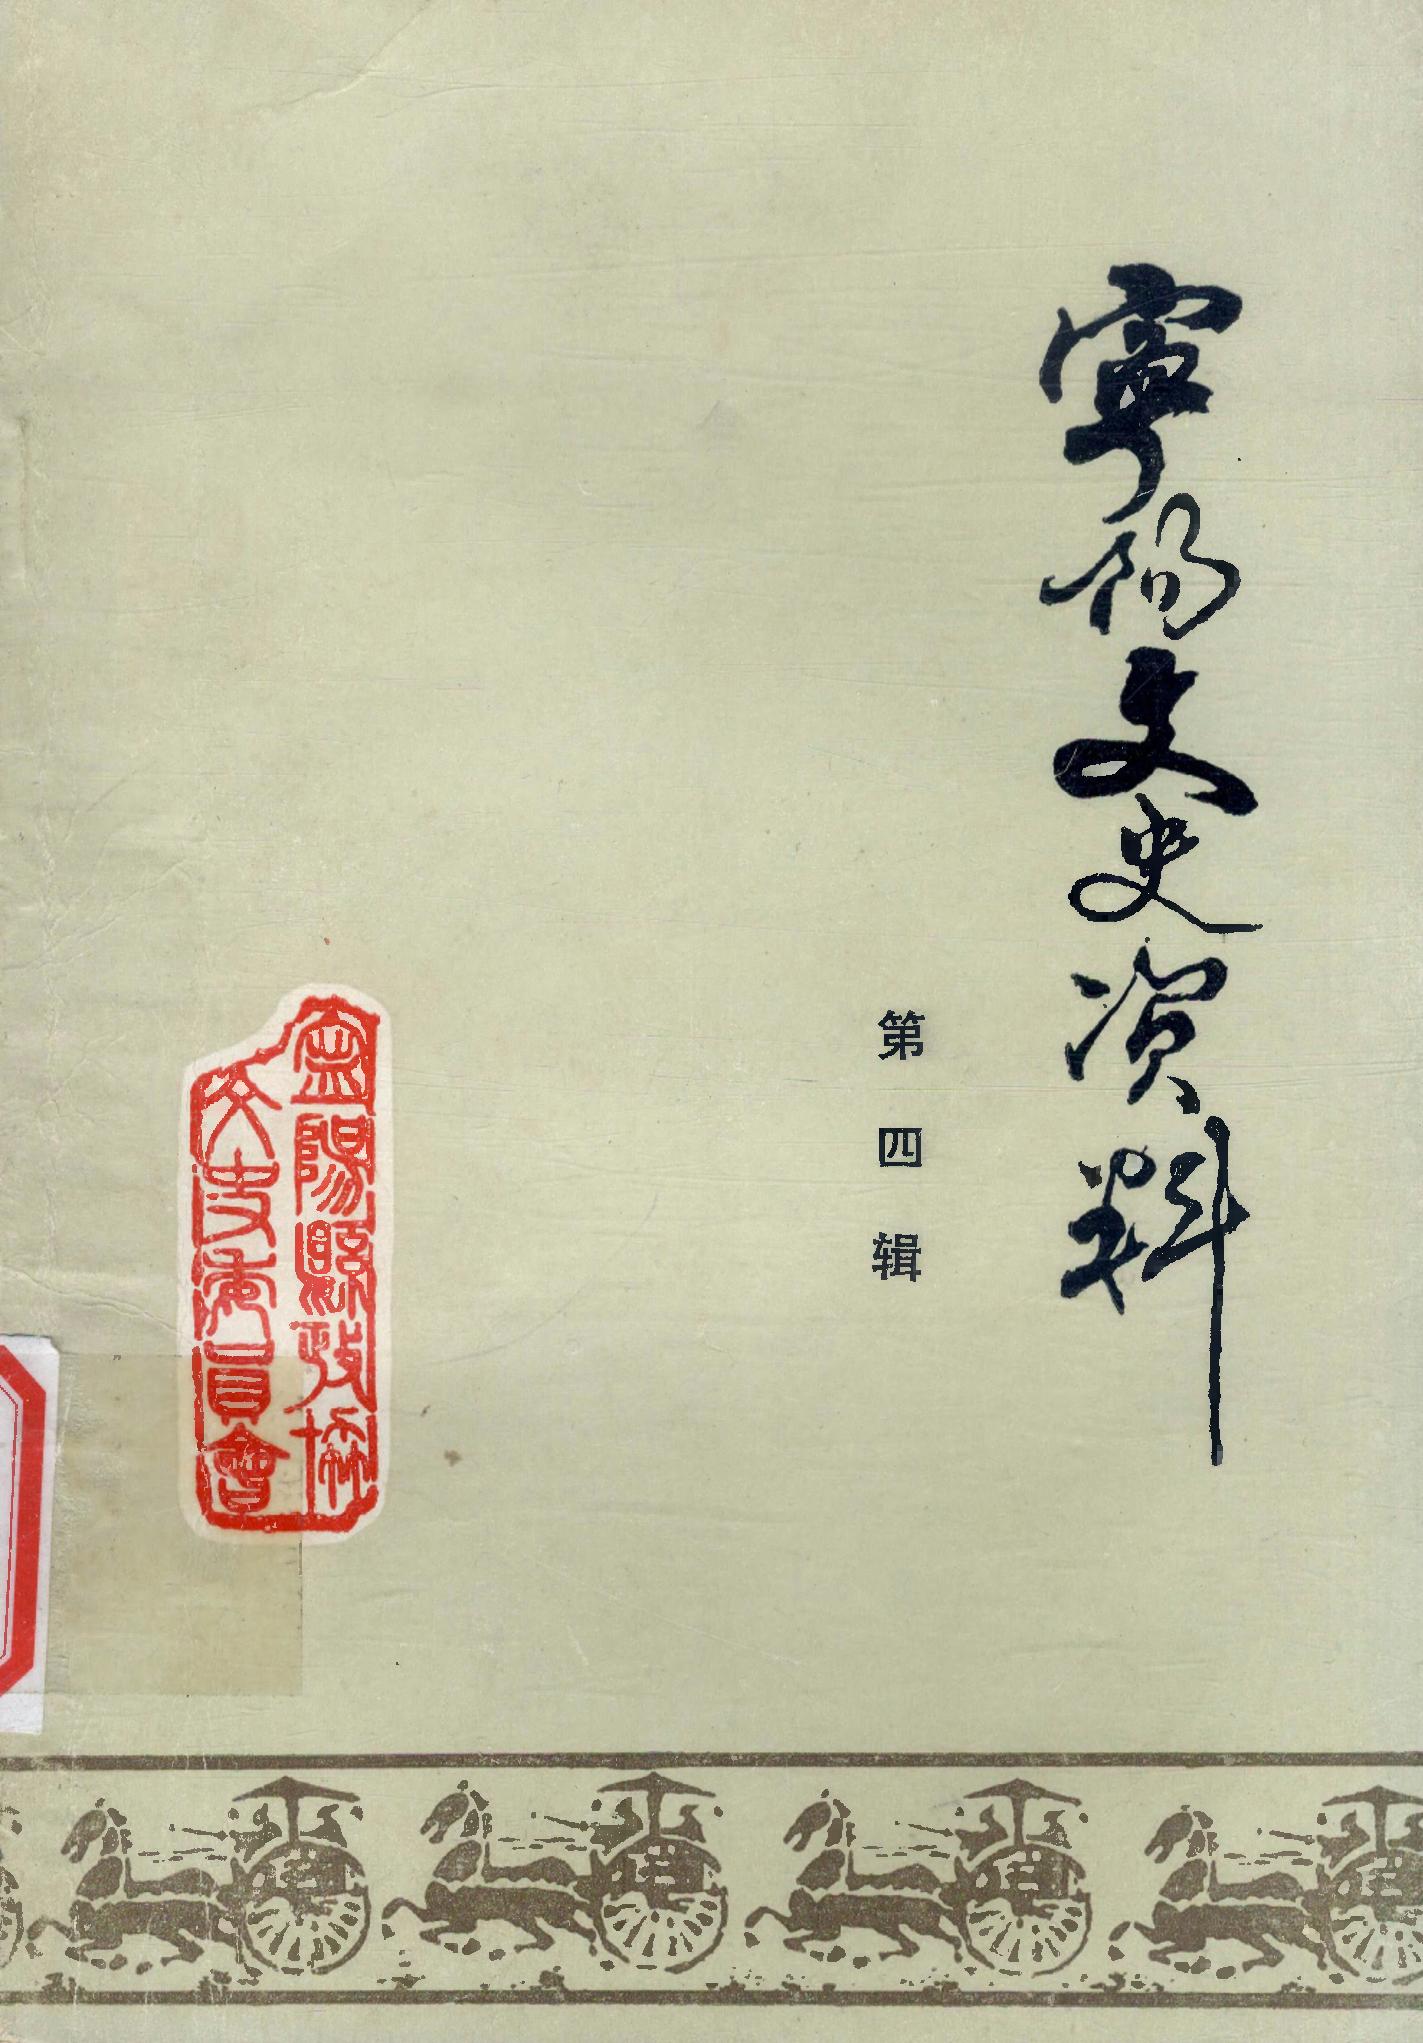 寧陽文史资料
第四辑
寍陽縣政協
文史委員會